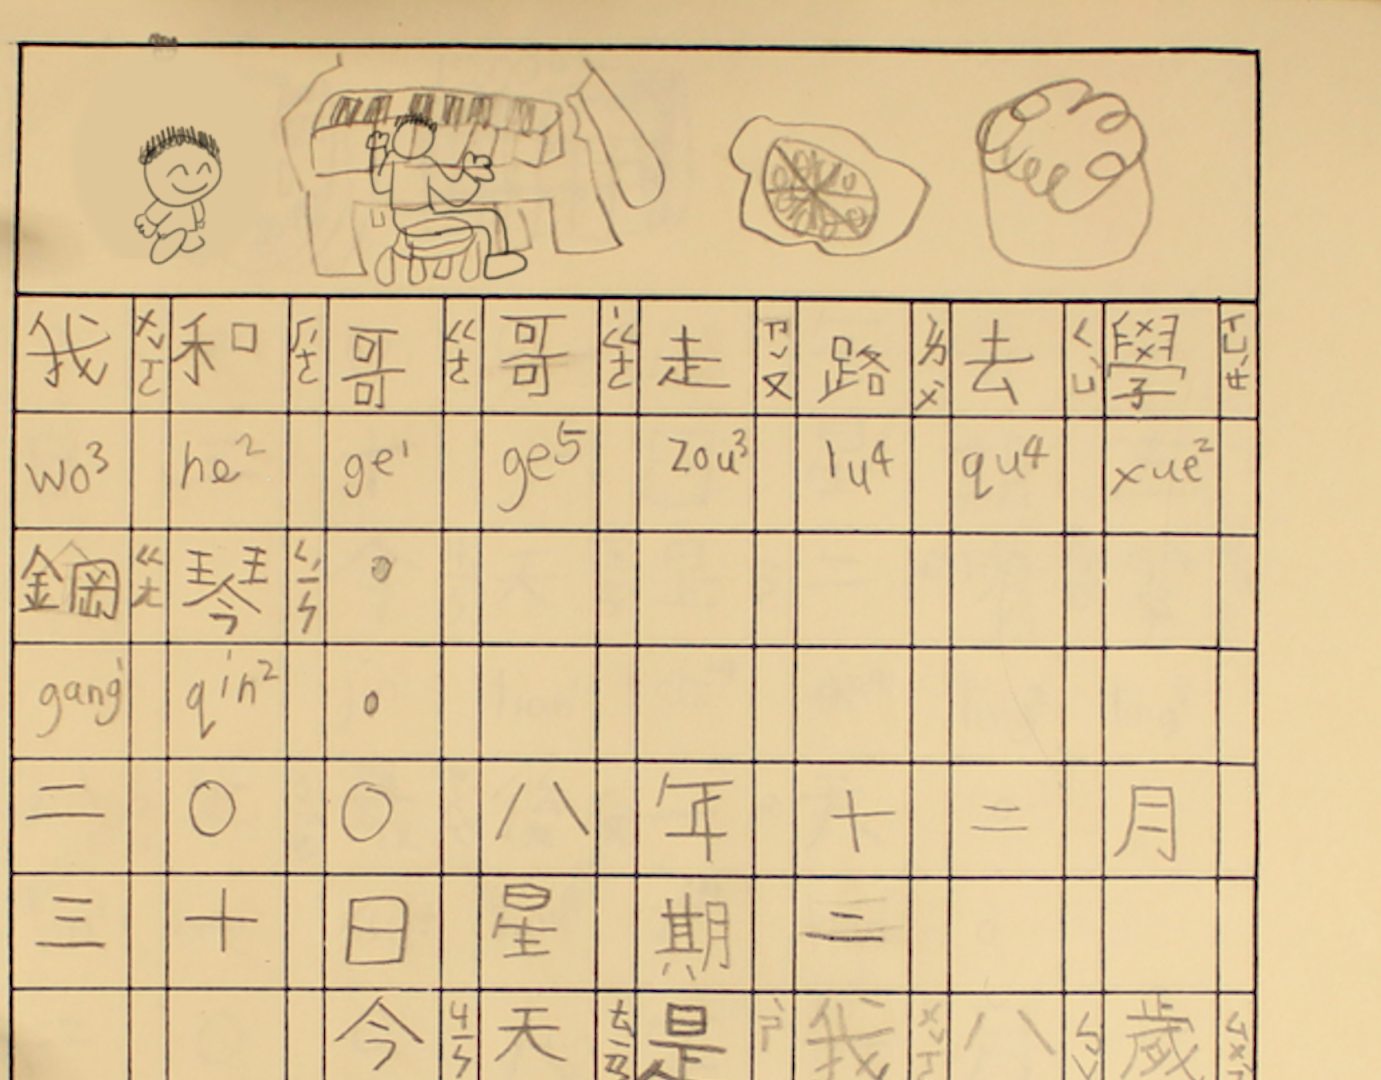 我ㄨㄛˇ和ㄏㄜˊ哥ㄍㄜ哥˙ㄍㄜ走ㄗㄡˇ路ㄌㄨˋ去ㄑㄩˋ學ㄒㄩㄝˊ
wo3 he2 ge1 ge5 zou3 lu4 qu4 xue2
鋼ㄍㄤ琴ㄑㄧㄣˊ。
gang1 qin2 。
二〇〇八年十二月
三十日星期二
今ㄐㄧㄣ天ㄊㄧㄢ是ㄕˋ我ㄨㄛˇ八ㄅㄚ歲ㄙㄨㄟˋ